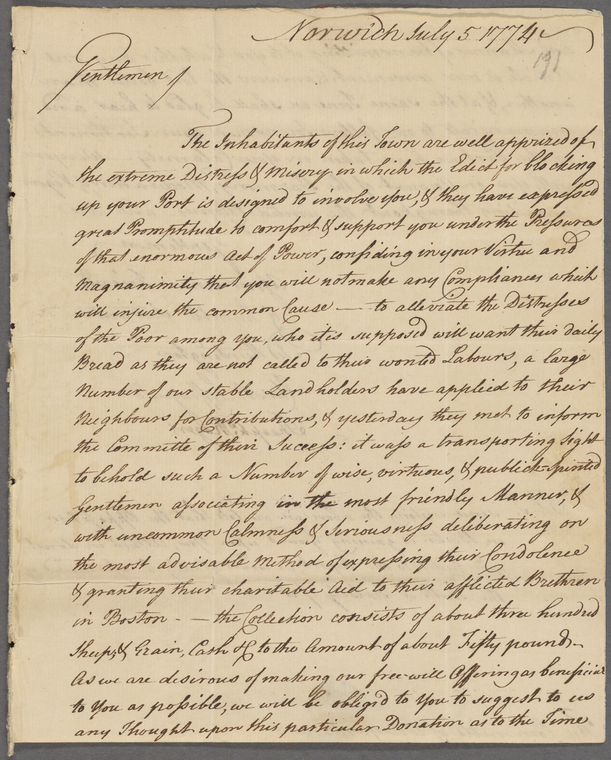 Norwich July 5 1774
191
Gentlemen /
The Inhabitants of this Town are well apprized of
the extreme Distress & Misery in which the Edict for blocking
up your Port is designed to involve you, & they have expressed
great Promptitude to comfort & support you under the Pressures
of that enormous Act of Power, confiding in your Virtue and
Magnanimity that you will not make any Compliances which
will injure the common Cause — to alleviate the Distresses
of the Poor among you, who it is supposed will want their daily
Bread as they are not called to their wonted Labours, a large
Number of our stable Landholders have applied to their
Neighbours for Contributions, & yesterday they met to inform
the Committe of their Success: it was a transporting sight
to behold such a Number of wise, virtuous, & publick-spirited
Gentlemen associating in the most friendly Manner, &
with uncommon Calmness & Seriousness deliberating on
the most advisable Method of expressing their Condolence
& granting their charitable Aid to their afflicted Brethren
in Boston - — the Collection consists of about three hundred
Sheep, & Grain, Cash &c to the Amount of about Fifty pound -
As we are desirous of making our free-will Offering as beneficial
to You as possible, we will be obliged to You to suggest to us
any Thought upon this particular Donation as to the Time